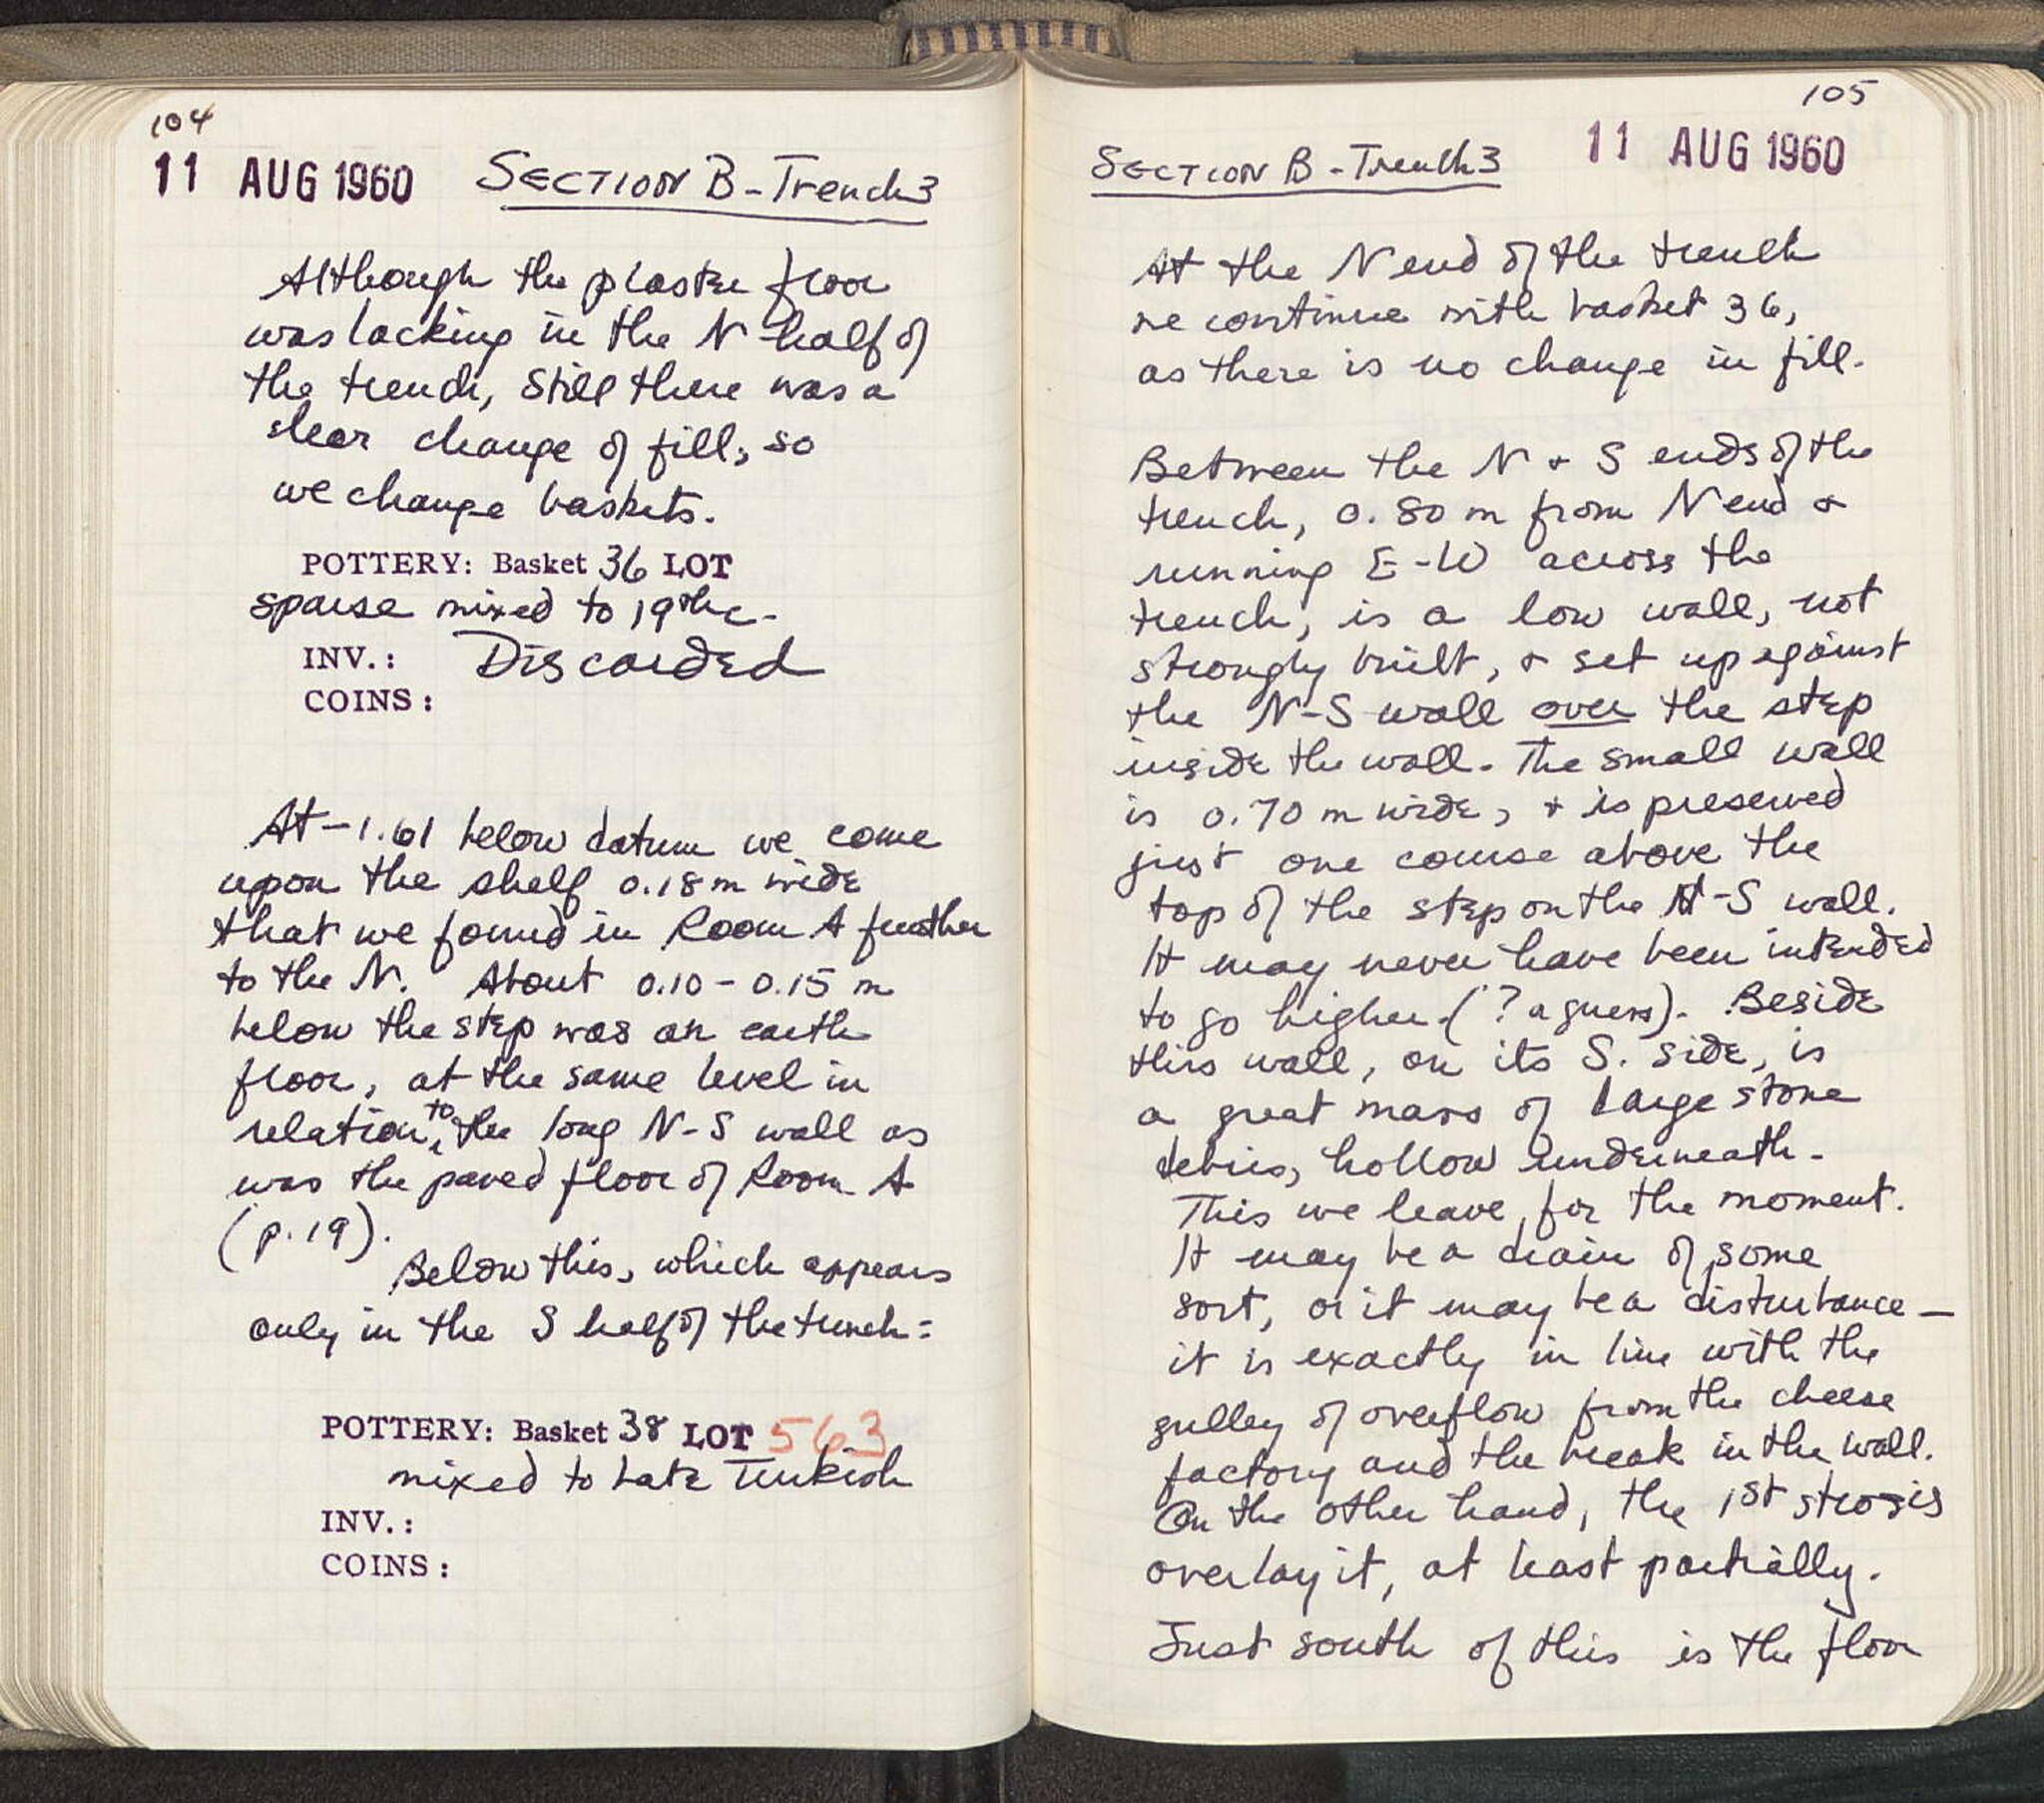 104
11 AUG 1960 SECTION B - Trench 3
Although the plaster floor
was lacking in the N half of
the trench, still there was a
clear change of fill, so
we change baskets.
POTTERY: Basket 36 LOT
sparse mixed to 19th c.
INV.: Discarded
COINS:
At -1.61 below datum we come
upon the shelf 0.18 m wide
that we found in Room A further
to the N. About 0.10 - 0.15 m
below the step was an earth
floor, at the same level in
relation to the long N-S wall as
was the paved floor of Room A
(p. 19).
Below this, which appears
only in the S half of the trench:
POTTERY: Basket 38 LOT 563
mixed to Late Turkish
INV.:
COINS:
105
SECTION B - Trench 3 11 AUG 1960
At the N end of the trench
we continue with basket 36,
as there is no change in fill.
Between the N + S ends of the
trench, 0.80 m from N end +
running E-W across the
trench, is a low wall, not
strongly built, + set up against
the N-S wall over the step
inside the wall. The small wall
is 0.70 m wide, + is preserved
just one course above the
top of the step on the N-S wall.
It may never have been intended
to go higher. (? a guess). Beside
this wall, on its S. side, is
a great mass of large stone
debris, hollow underneath.
This we leave, for the moment.
It may be a drain of some
sort, or it may be a disturbance —
it is exactly in line with the
gulley of overflow from the cheese
factory and the break in the wall.
On the other hand, the 1st strosis
overlay it, at least partially.
Just south of this is the floor